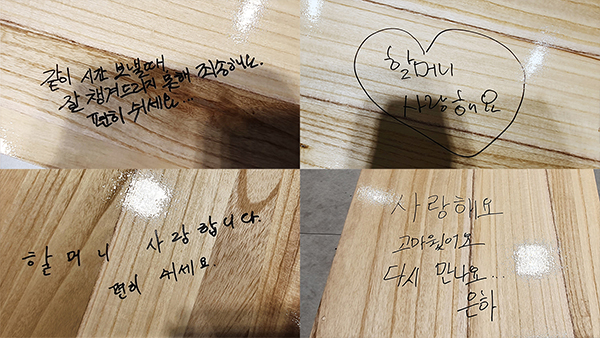 같이 시간 보낼때
잘 챙겨드리지 못해 죄송해요.
편히 쉬세요...
할머니
사랑해요
할머니 사랑합니다.
편히 쉬세요.
사랑해요
고마웠어요
다시 만나요...
은하